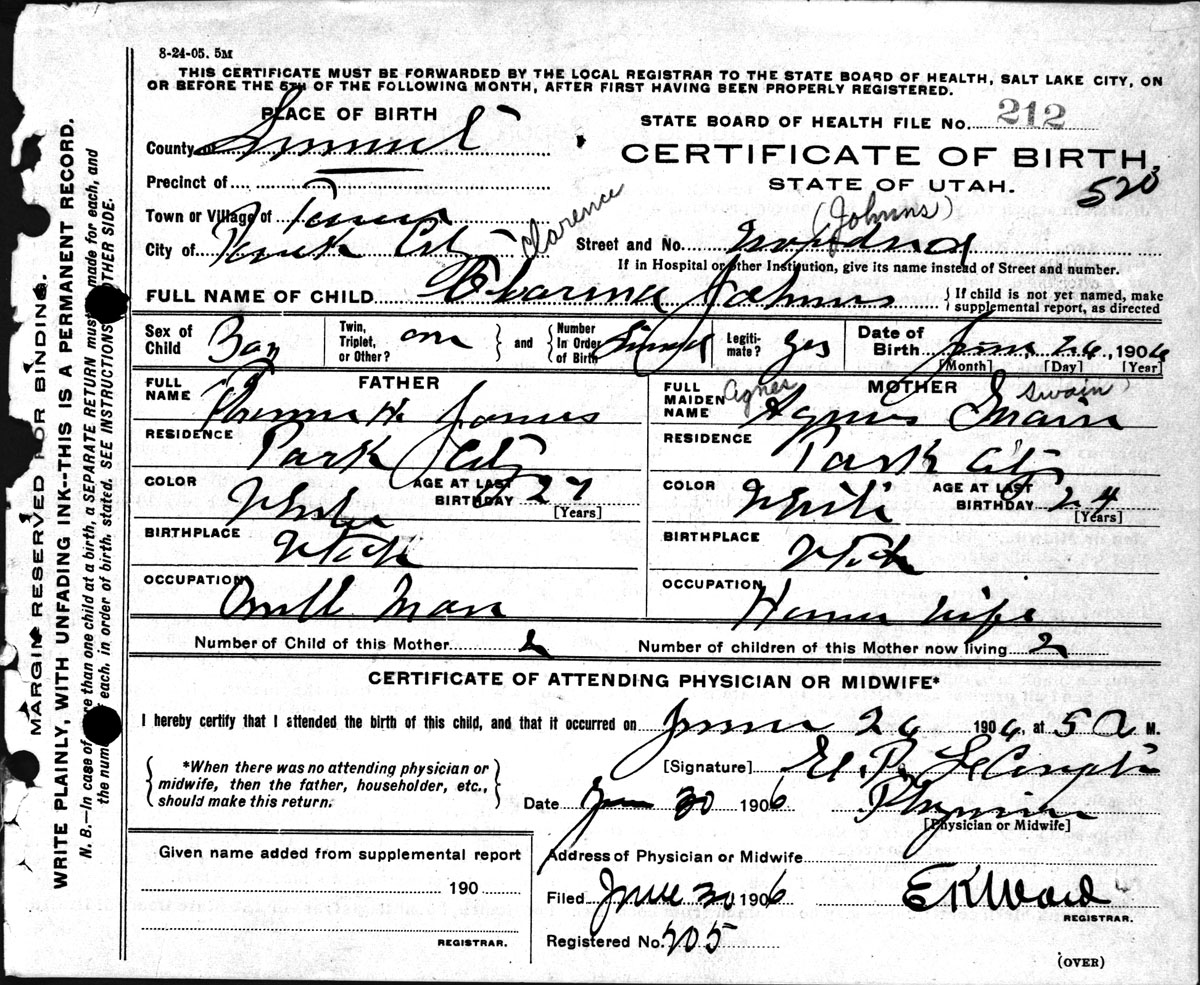 8-24-05. 5M
THIS CERTIFICATE MUST BE FORWARDED BY THE LOCAL REGISTRAR TO THE STATE BOARD OF HEALTH, SALT LAKE CITY, ON
OR BEFORE THE 5TH OF THE FOLLOWING MONTH, AFTER FIRST HAVING BEEN PROPERLY REGISTERED.
PLACE OF BIRTH
STATE BOARD OF HEALTH FILE No. 212
County Summit
CERTIFICATE OF BIRTH,
Precinct of
STATE OF UTAH.
520
Town or Village of
(Johnns)
City of Park City
Clarence
Street and No. Woodside
If in Hospital or other Institution, give its name instead of Street and number.
FULL NAME OF CHILD Clarence Johnns
If child is not yet named, make supplemental report, as directed
Sex of Child Boy
Twin, Triplet, or Other? one
and
Number In Order of Birth
Legiti-mate? yes
Date of Birth June 26, 1906
[Month] [Day] [Year]
FATHER
FULL NAME H. Johnns
RESIDENCE Park City
COLOR White
AGE AT LAST BIRTHDAY 27
[Years]
BIRTHPLACE Utah
OCCUPATION Mill Man
MOTHER
FULL MAIDEN NAME Agnes Agnes Swain Swain
RESIDENCE Park City
COLOR White
AGE AT LAST BIRTHDAY 24
[Years]
BIRTHPLACE Utah
OCCUPATION House wife
Number of Child of this Mother 2
Number of children of this Mother now living 2
CERTIFICATE OF ATTENDING PHYSICIAN OR MIDWIFE*
I hereby certify that I attended the birth of this child, and that it occurred on June 26 1906, at 5 A M.
*When there was no attending physician or midwife, then the father, householder, etc., should make this return.
[Signature] E. P. LeCompte
Date June 30 1906
Physician
[Physician or Midwife]
Given name added from supplemental report
190
REGISTRAR.
Address of Physician or Midwife
Filed June 30, 1906
E K Ward
REGISTRAR.
Registered No. 205
(OVER)
MARGIN RESERVED FOR BINDING.
WRITE PLAINLY, WITH UNFADING INK--THIS IS A PERMANENT RECORD.
N. B.—In case of more than one child at a birth, a SEPARATE RETURN must be made for each, and
the number of each, in order of birth, stated. SEE INSTRUCTIONS ON OTHER SIDE.